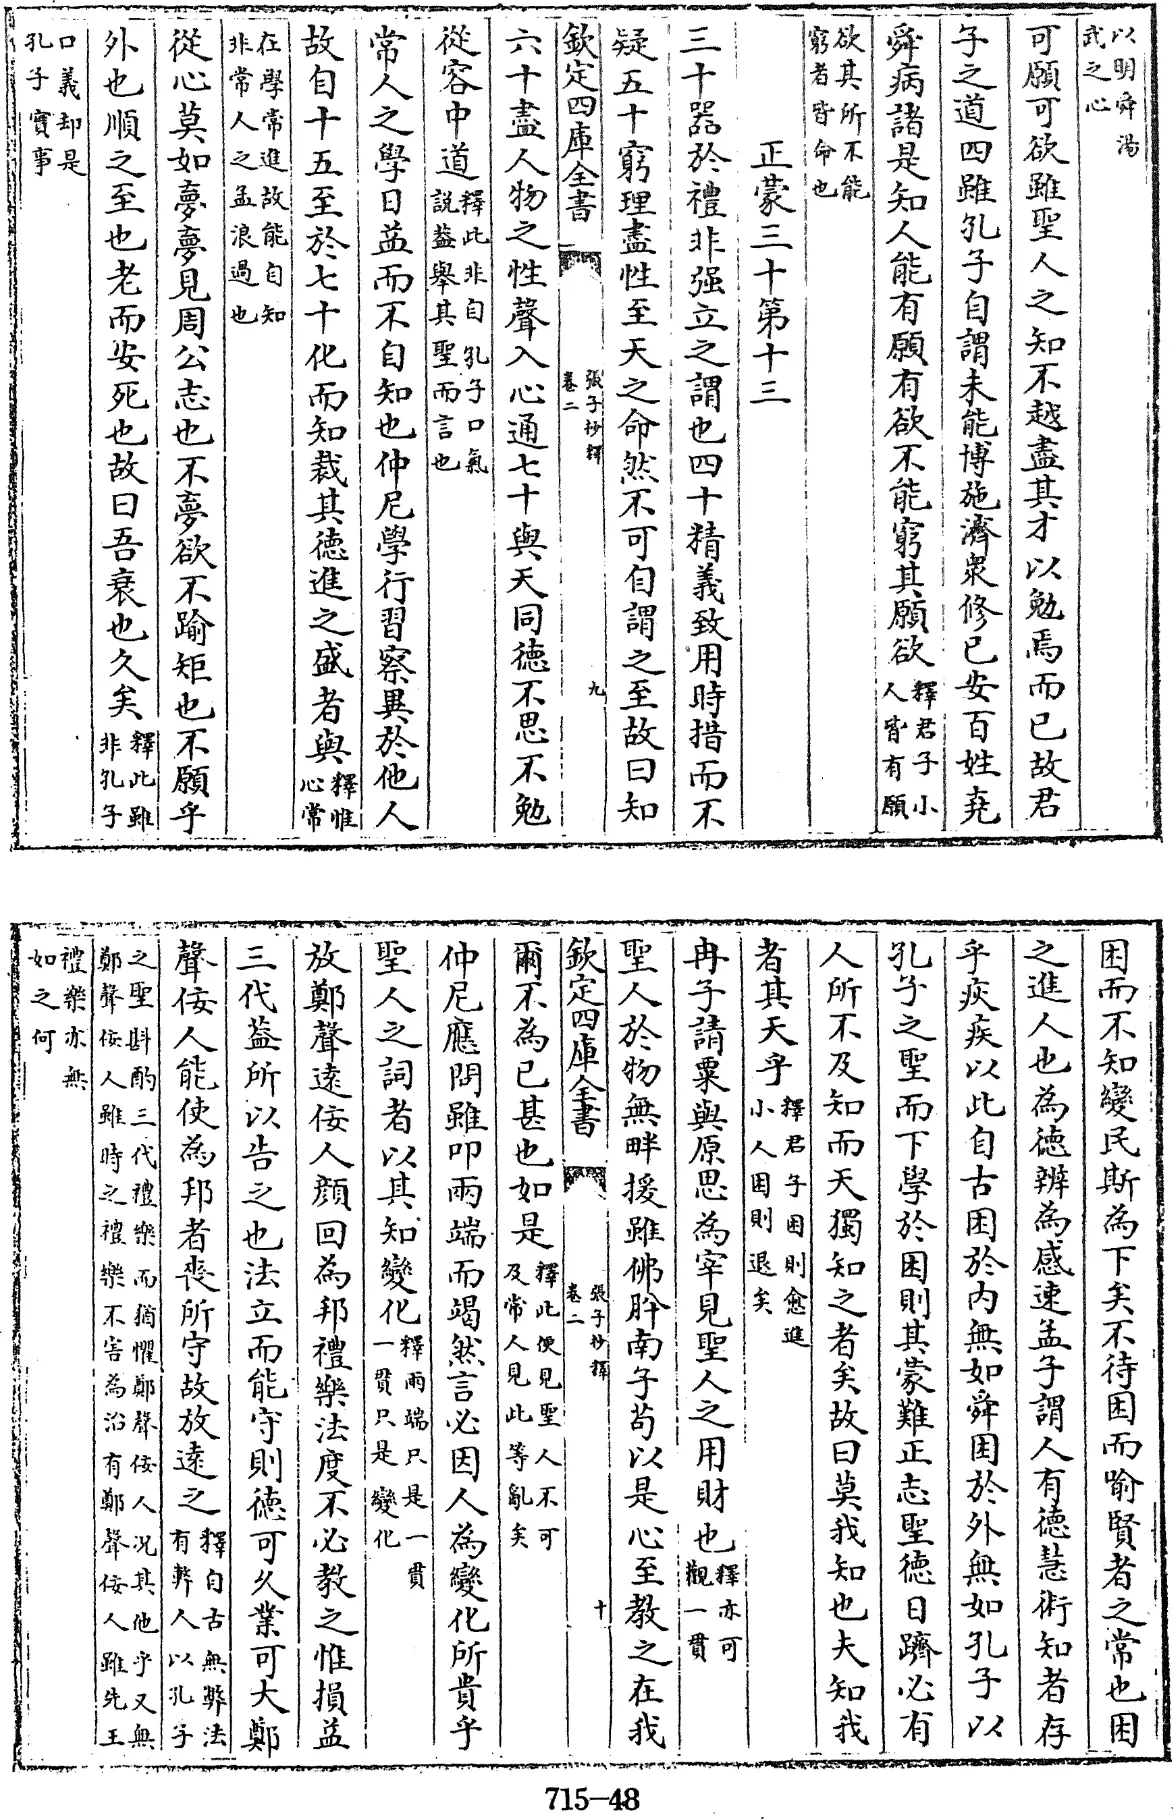 以明舜湯
武之心
可願可欲雖聖人之知不越盡其才以勉焉而已故君
子之道四雖孔子自謂未能博施濟衆修已安百姓堯
舜病諸是知人能有願有欲不能窮其願欲釋君子小
人皆有願
欲其所不能
窮者皆命也
正蒙三十第十三
三十器於禮非强立之謂也四十精義致用時措而不
疑五十窮理盡性至天之命然不可自謂之至故曰知
欽定四庫全書
張子抄釋
卷二
九
六十盡人物之性聲入心通七十與天同德不思不勉
從容中道釋此非自孔子口氣
說葢舉其聖而言也
常人之學日益而不自知也仲尼學行習察異於他人
故自十五至於七十化而知裁其德進之盛者與釋惟
心常
在學常進故能自知
非常人之孟浪過也
從心莫如夢夢見周公志也不夢欲不踰矩也不願乎
外也順之至也老而安死也故曰吾衰也久矣釋此雖
非孔子
口義却是
孔子實事
困而不知變民斯為下矣不待困而喻賢者之常也困
之進人也為德辨為感速孟子謂人有德慧術知者存
乎疢疾以此自古困於内無如舜困於外無如孔子以
孔子之聖而下學於困則其蒙難正志聖德日躋必有
人所不及知而天獨知之者矣故曰莫我知也夫知我
者其天乎釋君子困則愈進
小人困則退矣
冉子請粟與原思為宰見聖人之用財也釋亦可
觀一貫
聖人於物無畔援雖佛肸南子苟以是心至教之在我
欽定四庫全書
張子抄釋
卷二
十
爾不為已甚也如是釋此便見聖人不可
及常人見此等亂矣
仲尼應問雖叩兩端而竭然言必因人為變化所貴乎
聖人之詞者以其知變化釋兩端只是一貫
一貫只是變化
放鄭聲遠佞人顔回為邦禮樂法度不必教之惟損益
三代葢所以告之也法立而能守則德可久業可大鄭
聲佞人能使為邦者喪所守故放遠之釋自古無弊法
有弊人以孔子
之聖斟酌三代禮樂而猶懼鄭聲佞人况其他乎又無
鄭聲佞人雖時之禮樂不害為治有鄭聲佞人雖先王
禮樂亦無
如之何
715-48